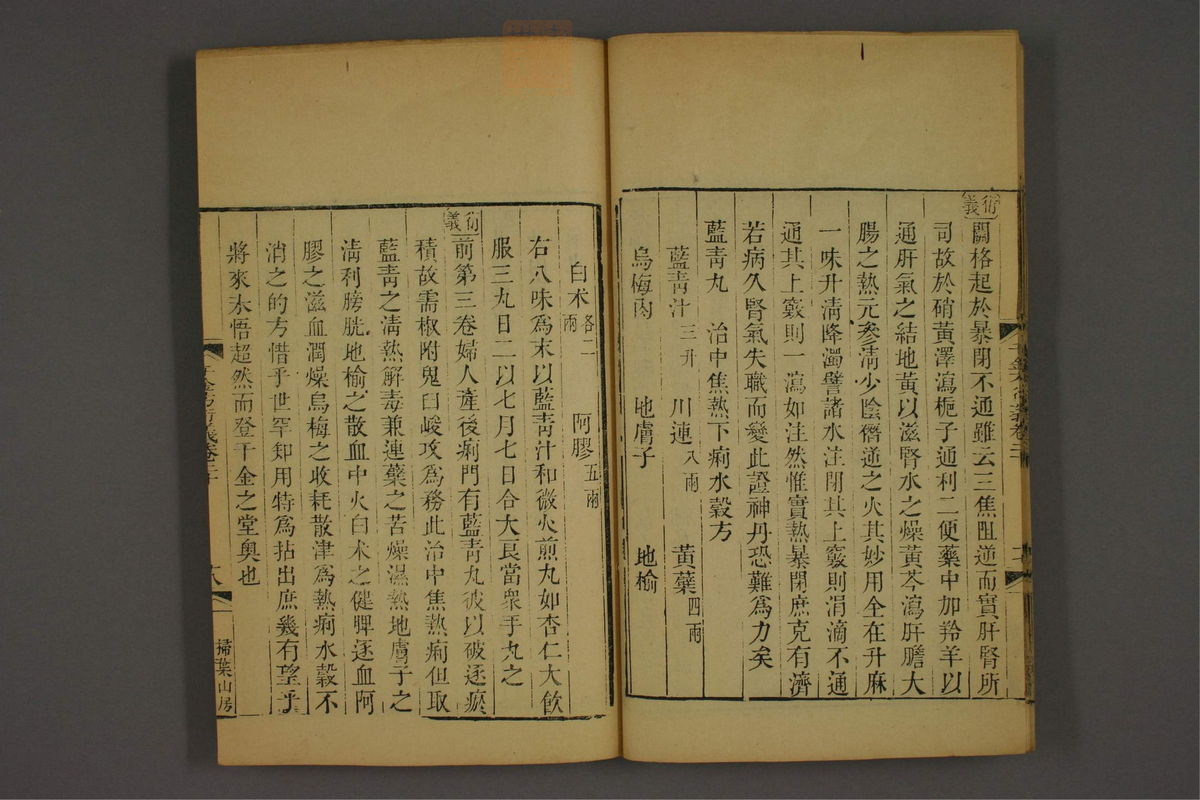 衍義
關格起於暴閉不通雖云三焦阻逆而實肝腎所
司故於硝黃澤瀉梔子通利二便藥中加羚羊以
通肝氣之結地黃以滋腎水之燥黃芩瀉肝膽大
腸之熱元參淸少陰僭逆之火其妙用全在升麻
一味升淸降濁譬諸水注閉其上竅則涓滴不通
通其上竅則一瀉如注然惟實熱暴閉庶克有濟
若病久腎氣失職而變此證神丹恐難爲力矣
藍靑丸 治中焦熱下痢水穀方
藍靑汁三升 川連八兩 黃蘗四兩
烏梅肉 地膚子 地榆
白朮各二兩 阿膠五兩
右八味爲末以藍靑汁和微火煎丸如杏仁大飮
服三丸日二以七月七日合大良當衆手丸之
衍義
前第三卷婦人產後痢門有藍靑丸彼以破逐瘀
積故需椒附鬼臼峻攻爲務此治中焦熱痢但取
藍靑之淸熱解毒兼連蘗之苦燥濕熱地膚子之
淸利膀胱地榆之散血中火白朮之健脾逐血阿
膠之滋血潤燥烏梅之收耗散津爲熱痢水穀不
消之的方惜乎世罕知用特爲拈出庶幾有望乎
將來大悟超然而登千金之堂奧也
千金方衍義卷二十
掃葉山房